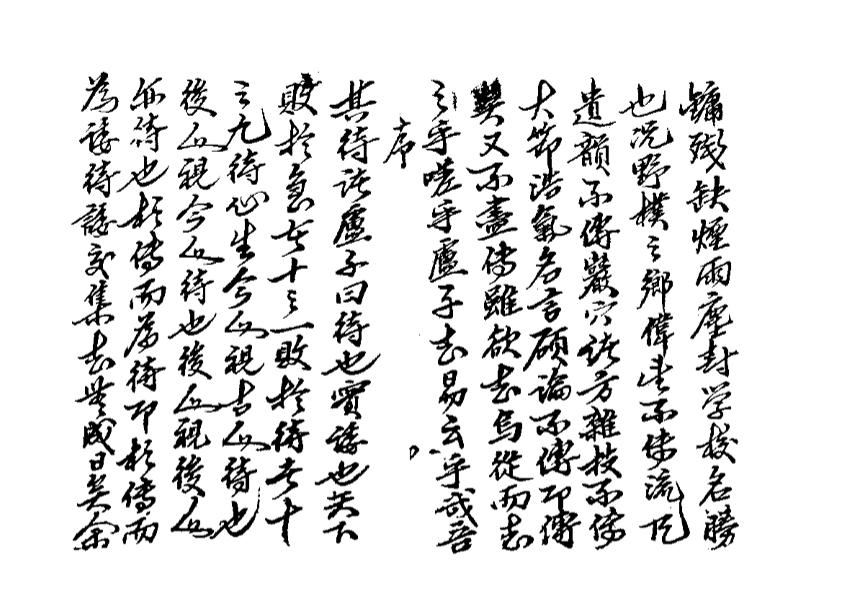 鏽殘缺煙雨塵封学校名勝
也况野樸之鄉偉 不傳流
遺韻不傳巖穴諸方雜技不傳
大節浩氣名言碩論不傳即傳
矣又不盡傳雖欲志烏從而志
之乎嗟乎廬子志易云乎哉吾
序
其待諸廬子曰待也實諉也天下
敗於急者十之一敗於待者十
之九待心生今人視古人待也
後人視今人待也後人視後人
亦待也相傳而為待即相傳而
為諉待諉交集志豈成日矣余